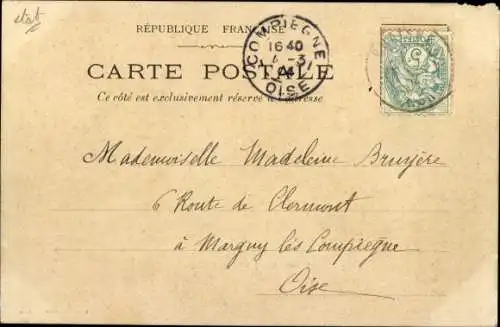 RÉPUBLIQUE FRANÇAISE
COMPIEGNE
16 40
OISE
CARTE POSTALE
Ce côté est exclusivement réservé à l'adresse
Mademoiselle Madeleine Bruyère
6 Route de Clermont
à Margny lès Compiègne
Oise